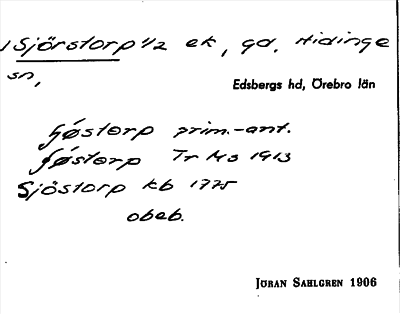 Sjörstorp 1/2 ek, gd, Hidinge
sn,
Edsbergs hd, Örebro län
jøstorp prim.-ant.
jøstorp Tr Ms 1913
Sjöstorp kb 1775
obeb.
JÖRAN SAHLGREN 1906